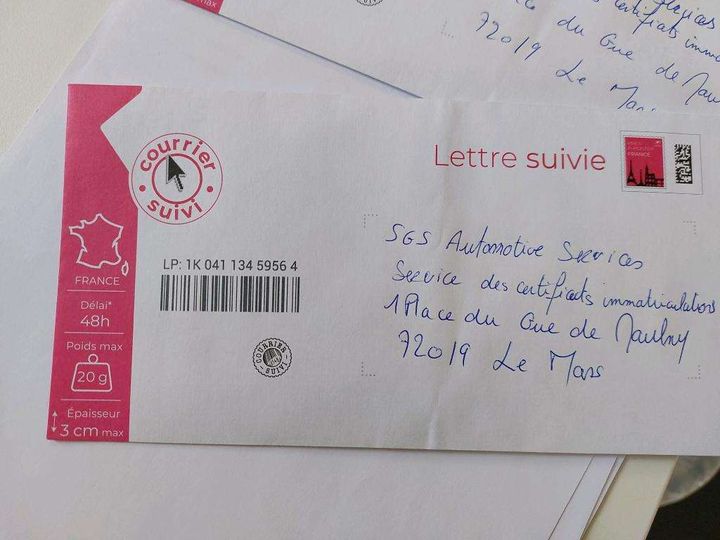 ervices
certificats immat
Place du Gué de Maulny
72019 Le Mans
courrier
suivi
Lettre suivie
FRANCE
SGS Automotive Services
Service des certificats immatriculations
1 Place du Gue de Maulny
72019 Le Mans
LP: 1K 041 134 5956 4
FRANCE
Délai*
48h
Poids max
20 g
Épaisseur
3 cm max
COURRIER
SUIVI
max